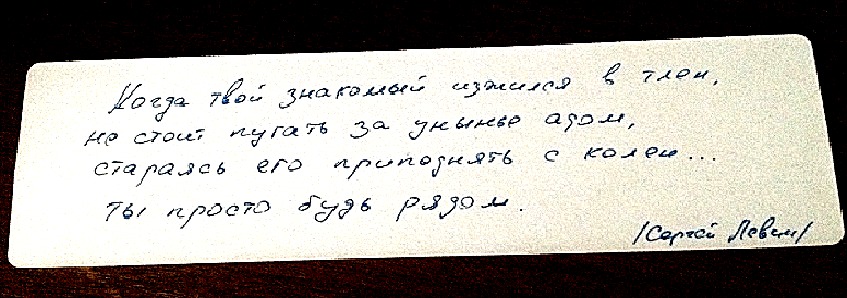 Когда твой знакомый изжился в тлен,
не стоит пугать за унынье адом,
стараясь его приподнять с колен...
ты просто будь рядом.
/Сергей Левин/